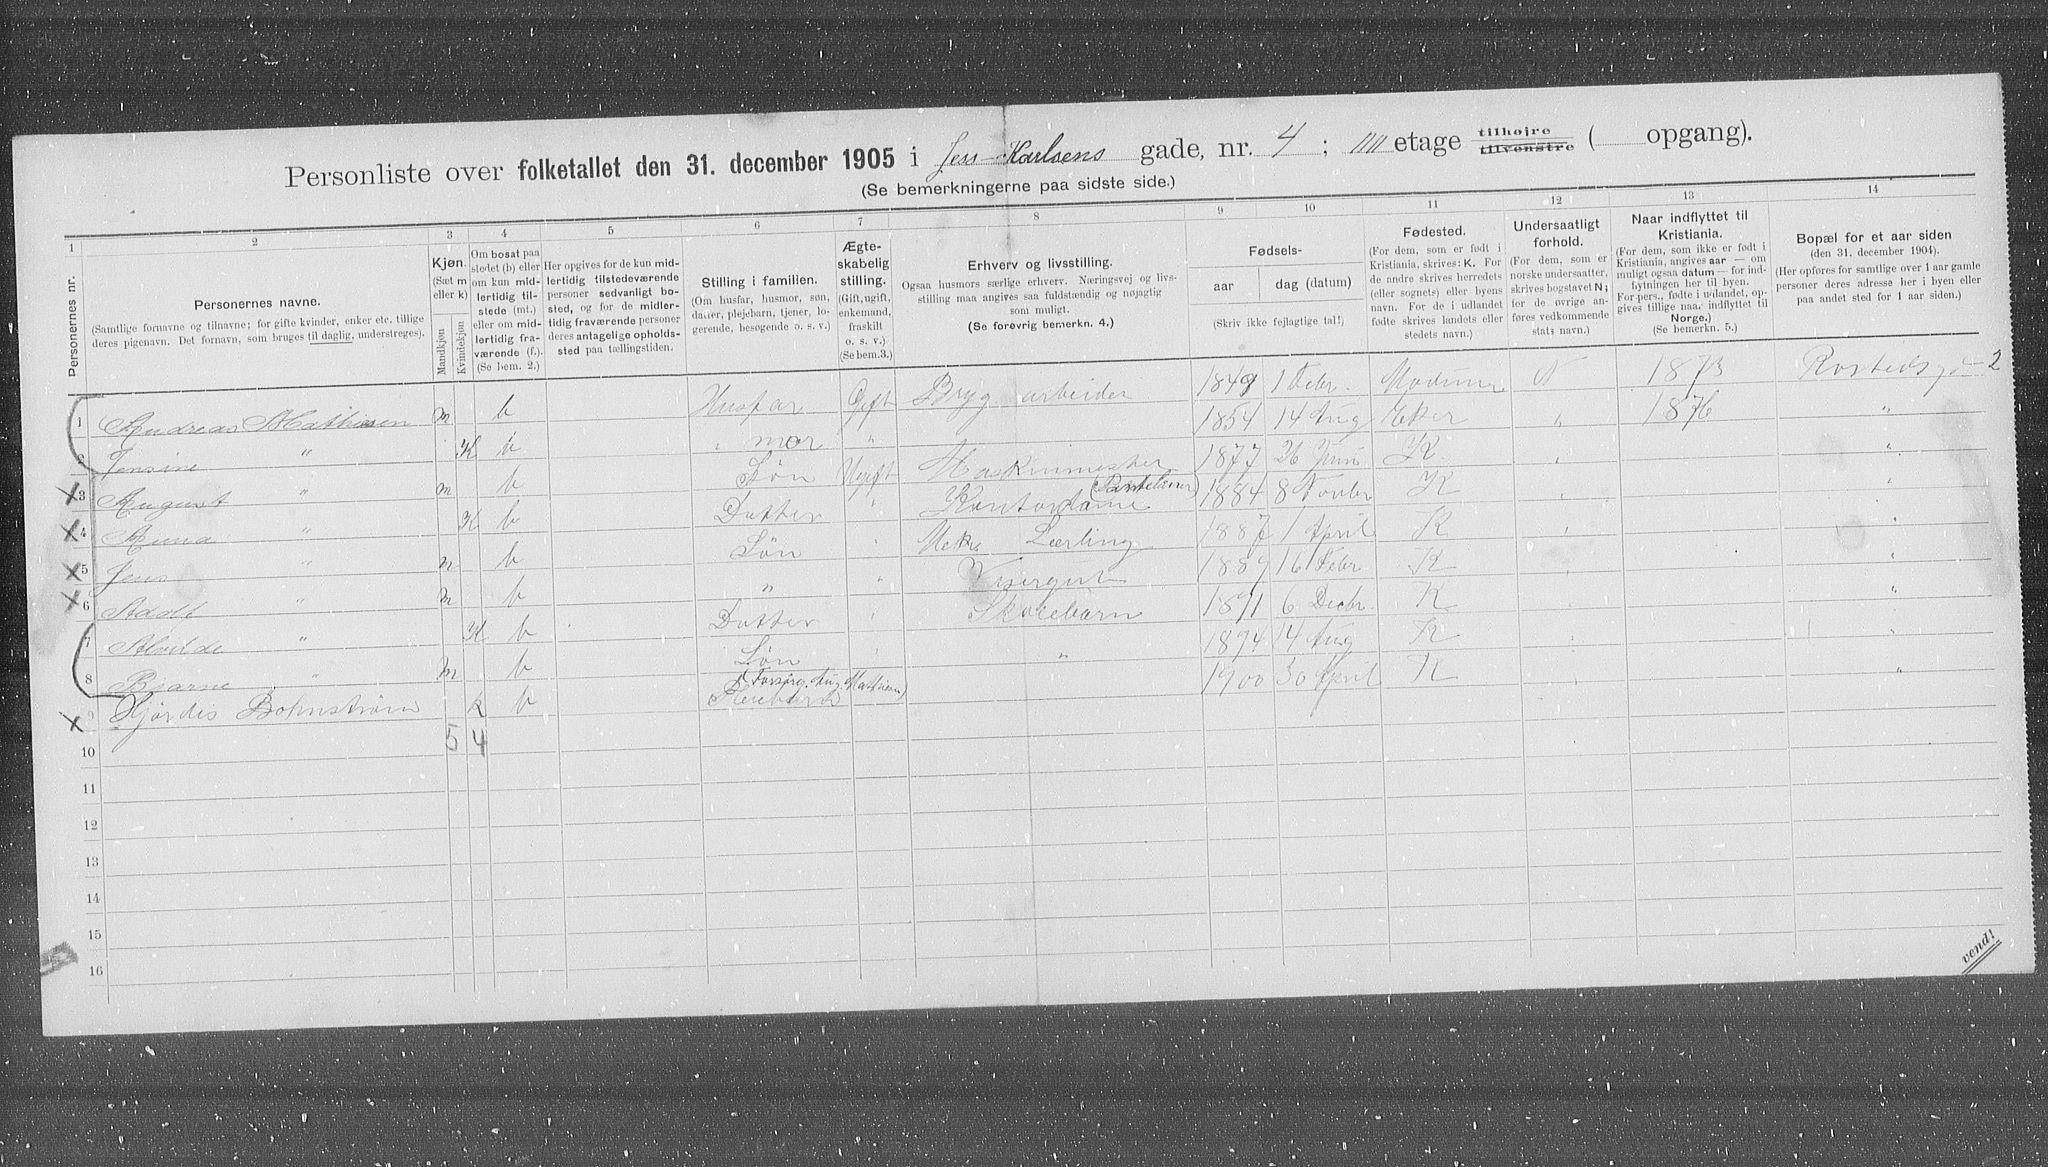 Personliste over folketallet den 31. december 1905 i Jess Karlsens gade, nr. 4 ; IIII etage tilhøire tilvenstre ( opgang).
(Se bemerkningerne paa sidste side.)
1 2 3 4 5 6 7 8 9 10 11 12 13 14
Personernes nr.
Personernes navne.
(Samtlige fornavne og tilnavne; for gifte kvinder, enker etc. tillige deres pigenavn. Det fornavn, som bruges til daglig, understreges).
Kjøn.
(Sæt m eller k)
Mandkjøn Kvindekjøn.
Om bosat paa stedet (b) eller om kun midlertidig tilstede (mt.) eller om midlertidig fraværende (f.). (Se bem. 2.)
Her opgives for de kun midlertidig tilstedeværende personer sedvanligt bosted, og for de midlertidig fraværende personer deres antagelige opholdssted paa tællingstiden.
Stilling i familien.
(Om husfar, husmor, søn, datter, plejebarn, tjener, logerende, besøgende o. s. v.)
Ægteskabelig stilling.
(Gift, ugift, enkemand, fraskilt o. s. v.) (Se bem.3.)
Erhverv og livsstilling.
Ogsaa husmors særlige erhverv. Næringsvej og livsstilling maa angives saa fuldstændig og nøjagtig som muligt.
(Se forøvrig bemerkn. 4.)
Fødsels-
aar dag (datum)
(Skriv ikke fejlagtige tal!)
Fødested.
(For dem, som er født i Kristiania, skrives: K. For de andre skrives herredets (eller sognets) eller byens navn. For de i udlandet fødte skrives landets eller stedets navn.)
Undersaatligt forhold.
(For dem, som er norske undersaatter, skrives bogstavet N; for de øvrige anføres vedkommende stats navn.)
Naar indflyttet til Kristiania.
(For dem, som ikke er født i Kristiania, angives aar — om muligt ogsaa datum — for indflytningen her til byen. For pers., fødte i udlandet, opgives tillige naar indflyttet til Norge.)
(Se bemerkn. 5.)
Bopæl for et aar siden
(den 31. december 1904).
(Her opføres for samtlige over 1 aar gamle personer deres adresse her i byen eller paa andet sted for 1 aar siden.)
1 Andreas Mathiesen m b Husfar Gift Bryg arbeider 1849 1 Febr. Modum N 1873 Rostedsgd 2
2 Jensine " K b " mor " 1854 14 Aug Eker " 1876 "
3 August " m b Søn Ugift Maskinmester 1877 26 Juni K. " "
4 Anna " K b Datter " Kontordame 1884 8 K " "
5 Jens " m b Søn " Mek. Lærling 1887 1 April K " "
6 Adolf " m b " " Visergut 1889 16 Febr K " "
7 Alvilde " K b Datter " Skolebarn 1891 6 Decbr. K " "
8 Bjarne " m b Søn " " 1894 14 Aug K " "
9 Hjørdis Bohnstrøm k b Pleiebarn (Forsørg. Aug. Mathisen) 1900 30 April K "
10 5 4
11
12
13
14
15
16
vend!